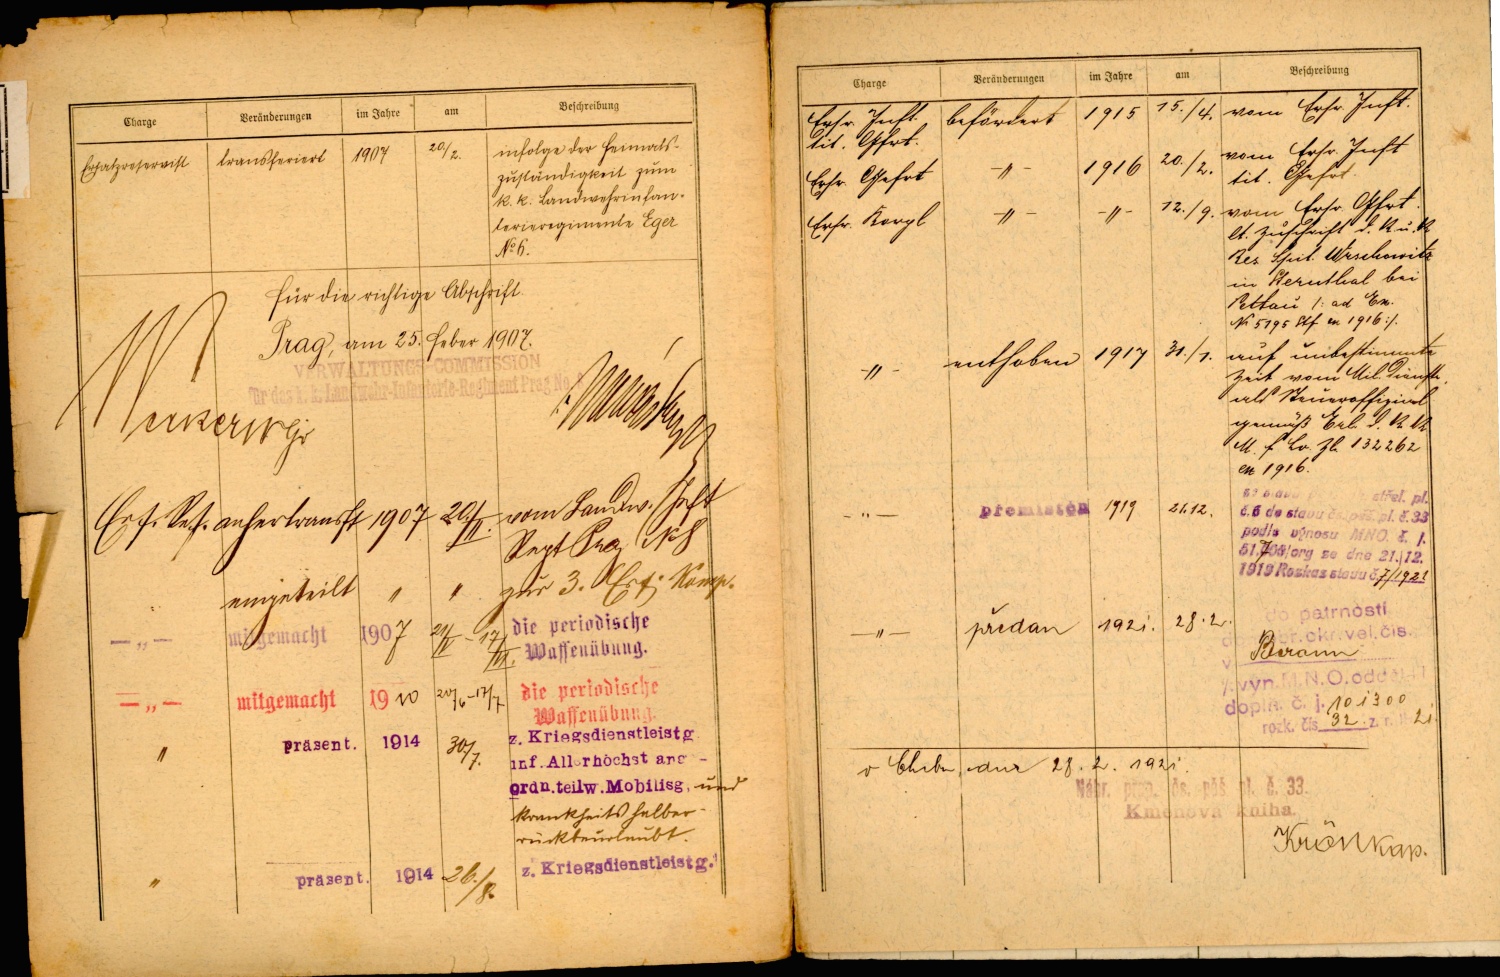 Charge Veränderungen im Jahre am Beschreibung
Ersatzreservist transferiert 1907 20/2. infolge der Heimats-
zuständigkeit zum
k. k. Landwehrinfan-
terieregimente Eger
No 6.
für die richtige Abschrift
Prag, am 25. feber 1907.
VERWALTUNGS-COMMISSION
für das k. k. Landwehr-Infanterie-Regiment Prag No. 8
Ers. Res. anhertransft 1907 20/II. vom Landw. Inft
Regt Prag N 8
eingeteilt " " zur 3. Ers. Komp.
—„— mitgemacht 1907 21/II-17/III. die periodische
Waffenübung.
—„— mitgemacht 1910 20/6-17/7 die periodische
Waffenübung.
" präsent. 1914 30/7. z. Kriegsdienstleistg
inf. Allerhöchst ang-
ordn. teilw. Mobilisg, und
krankheitshalber
rückbeurlaubt.
" präsent. 1914 26./8. z. Kriegsdienstleistg.
Charge Veränderungen im Jahre am Beschreibung
Ersr. Inft. befördert 1915 15./4. vom Ersr. Inft.
tit. Gfrt.
Ersr. Gefrt —"— 1916 20./2. vom Ersr. Inft
tit. Gefrt.
Ersr. Korpl —"— —"— 12./9. vom Ersr. Gfrt.
lt. Zuschrift d. K u. K
Res. Spit. Wrschowitz
in Sternthal bei
Pettau /: ad Ex.
No 5195 Stf ex 1916 :/.
—"— enthoben 1917 31./1. auf unbestimmte
Zeit vom Mil. Dienste,
als Steueroffizial
gemäß Erl. d. K K
M. f Lv. Zl. 132262
ex 1916.
—"— přemístěn 1919 21.12. střel. pl.
č. 6 do stavu čs. pěš. pl. č. 33
podle výnosu MNO. č. j.
org ze dne 21./12.
1919 Rozkas stavu č. 7/1921
—"— předán 1921. 28.2. do patrnosti
okr. vel. čís.
Beroun
výn. M.N.O. odděl
dopln. č. j. 101300
rozk. čís. 32. z r. 21.
v Chebu, dne 28. 2. 1921.
Náhr. prap. čs. pěš. pl. č. 33.
Kmenová kniha.